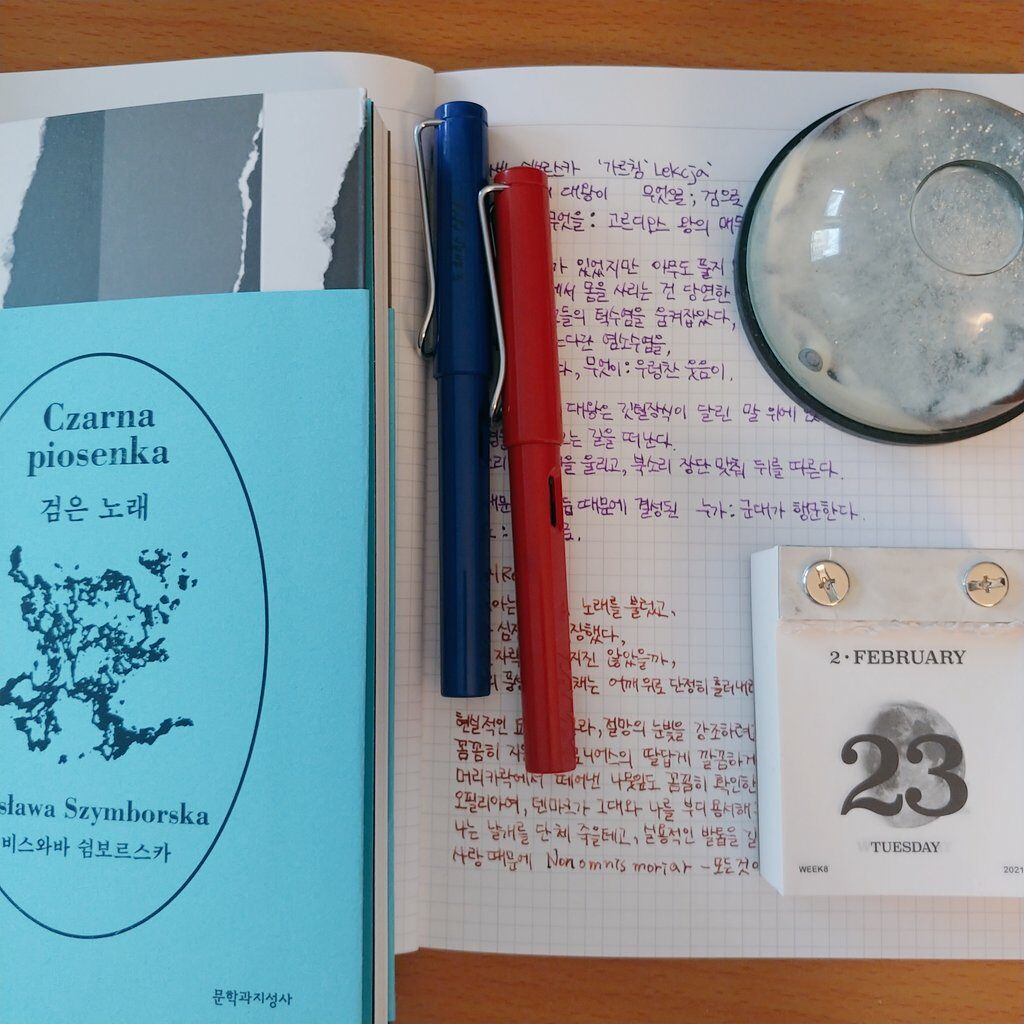 Czarna
piosenka
검은 노래
sława Szymborska
비스와바 쉼보르스카
문학과지성사
'가르침' Lekcja'
대왕이 무엇을; 검으로
무엇을: 고르디우스 왕의 매듭
가 있었지만 아무도 풀지
에서 몸을 사리는 건 당연한
그들의 턱수염을 움켜잡았다,
염소수염을,
다, 무엇이: 우렁찬 웃음이.
대왕은 깃털장식이 달린 말 위에
는 길을 떠난다.
울리고, 북소리 장단 맞춰 뒤를 따른다.
때문에 결성된 누가: 군대가 행군한다.
노래를 불렀고,
장했다,
않았을까,
어깨 위로 단정히 흘러내려
현실적인 절망의 눈빛을 간조하려고
꼼꼼히 니어스의 딸답게 깔끔하게
머리카락에서 떼어낸 나뭇잎도 꼼꼼히 확인한
오필리아여, 덴마크가 그대와 나를 부디 용서해
나는 날개를 단 채 죽을테고, 실용적인 발톱을
사랑 때문에 Non omnis moriar - 모든 것이
2·FEBRUARY
23
TUESDAY
WEEK8 2021